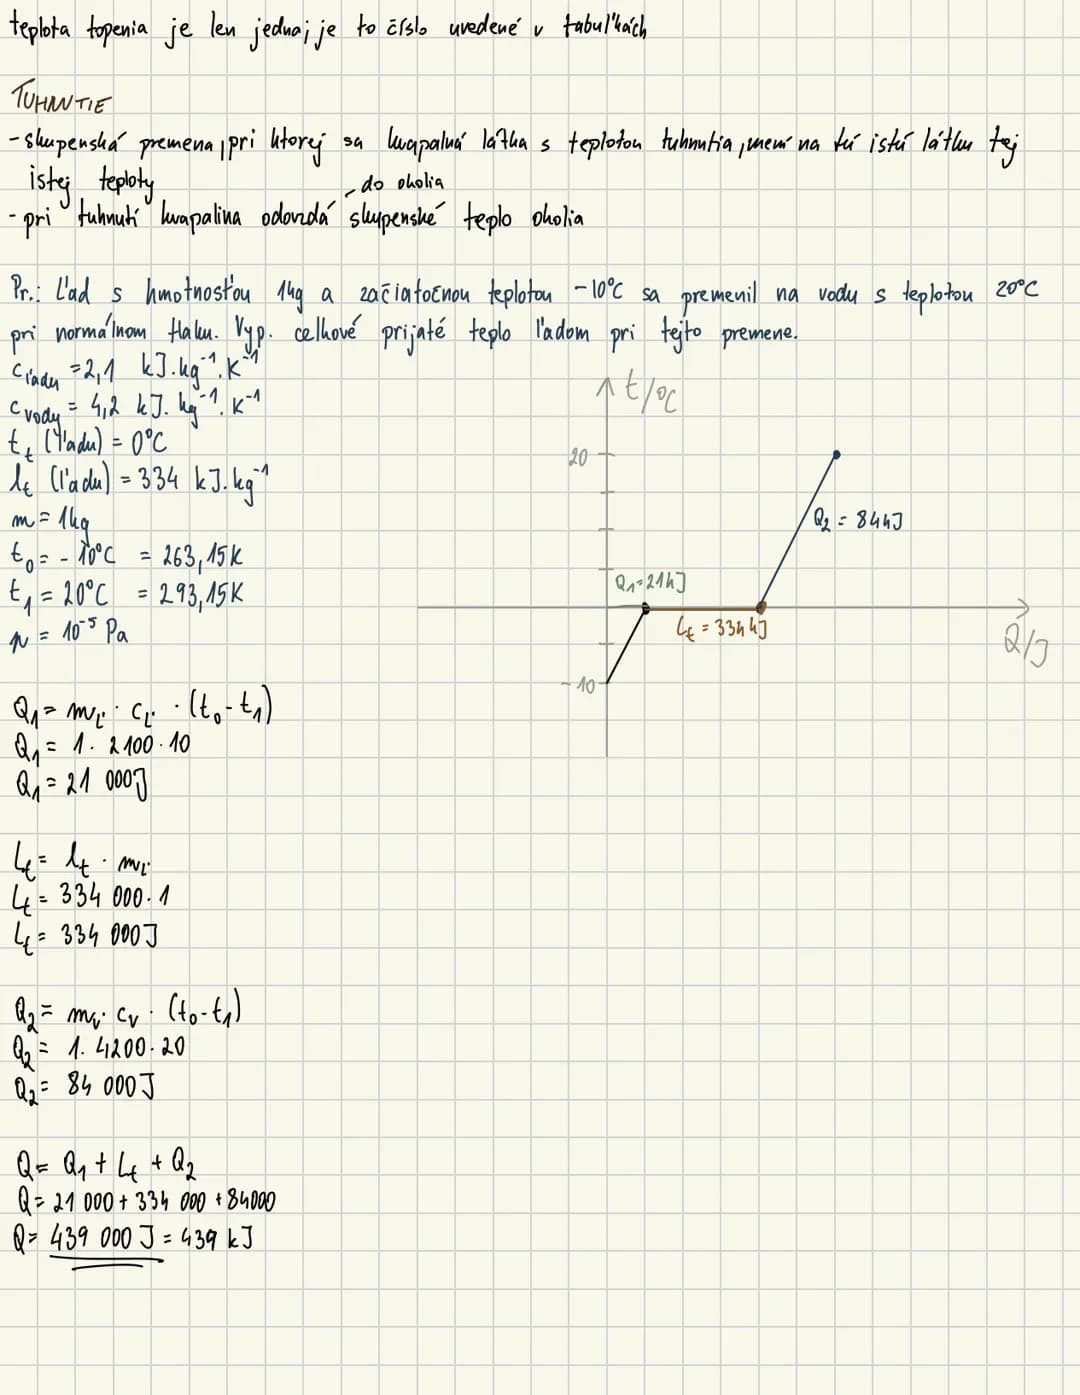 teplota topenia je len jedna; je to číslo uvedené v tabuľkách
TUHNUTIE
- skupenská premena, pri ktorej sa kvapalná látka s teplotou tuhnutia, mení na tú istú látku tej
istej teploty
do okolia
- pri tuhnutí kvapalina odovzdá skupenské teplo okolia
Pr.: Ľad s hmotnosťou 1kg a začiatočnou teplotou -10°C sa premenil na vodu s teplotou 20°C
pri normálnom tlaku. Vyp. celkové prijaté teplo ľadom pri tejto premene.
c ľadu = 2,1 kJ.kg⁻¹.K⁻¹
c vody = 4,2 kJ.kg⁻¹.K⁻¹
t_t (ľadu) = 0°C
l_t (ľadu) = 334 kJ.kg⁻¹
m = 1kg
t₀ = -10°C = 263,15K
t₁ = 20°C = 293,15K
p = 10⁻⁵ Pa
t/°C
20
Q₂ = 84kJ
Q₁=21kJ
L_t = 334kJ
Q/J
-10
Q₁ = m_ľ · c_ľ · (t₀-t₁)
Q₁ = 1. 2100.10
Q₁ = 21 000J
L_t = l_t · m_ľ
L_t = 334 000.1
L_t = 334 000J
Q₂ = m_v · c_v · (t₀-t₁)
Q₂ = 1. 4200.20
Q₂ = 84 000J
Q = Q₁ + L_t + Q₂
Q = 21 000 + 334 000 + 84000
Q = 439 000 J = 439 kJ